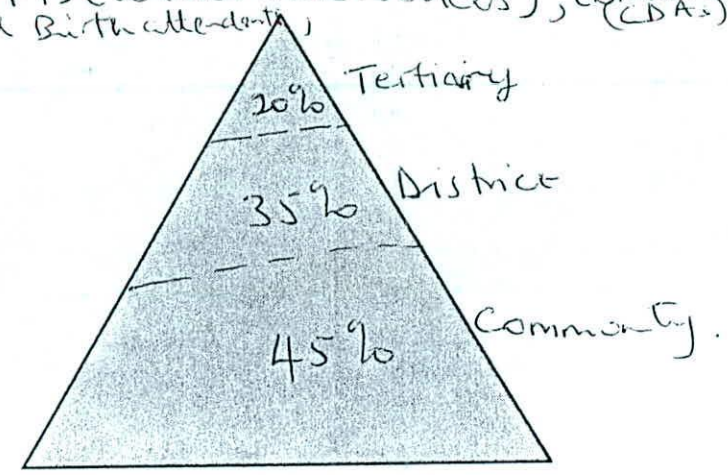 (CDAs)
Birth attendants,
Tertiary
20%
District
35%
Community.
45%